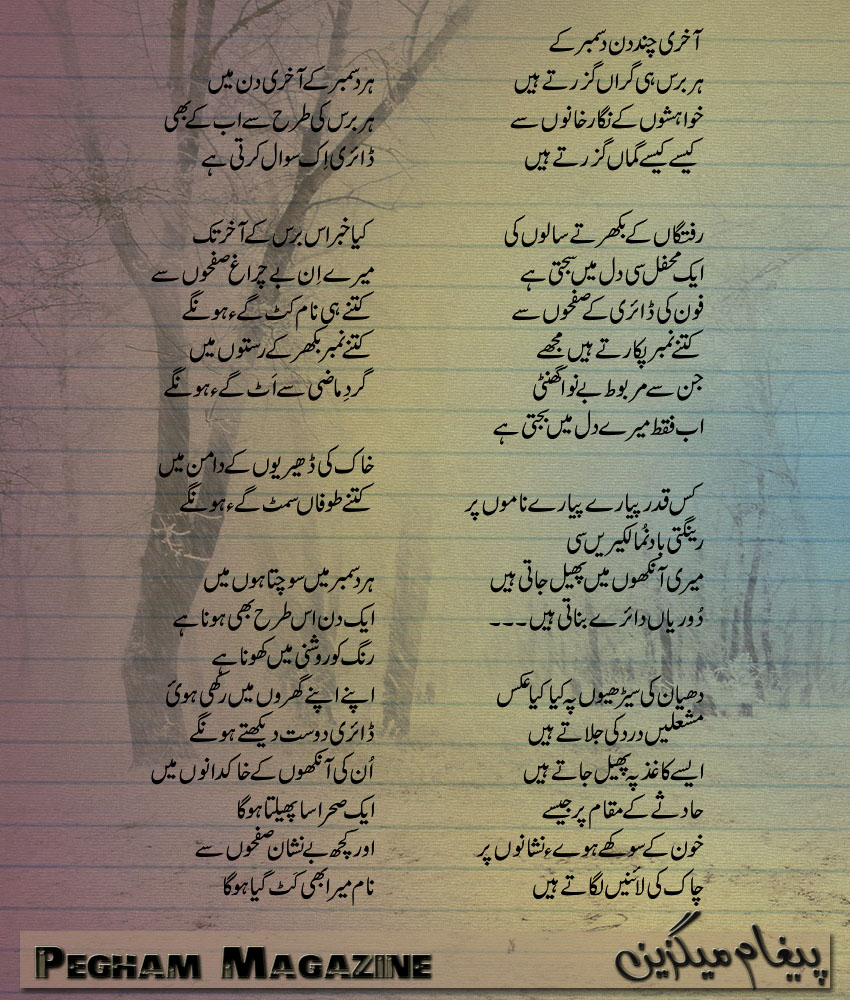 آخری چند دن دسمبر کے
ہر برس ہی گراں گزرتے ہیں
خواہشوں کے نگار خانوں سے
کیسے کیسے گماں گزرتے ہیں
رفتگاں کے بکھرتے سالوں کی
ایک محفل سی دل میں سجتی ہے
فون کی ڈائری کے صفحوں سے
کتنے نمبر پکارتے ہیں مجھے
جن سے مربوط بے نوا گھنٹی
اب فقط میرے دل میں بجتی ہے
کس قدر پیارے پیارے ناموں پر
رینگتی بدنُما لکیریں سی
میری آنکھوں میں پھیل جاتی ہیں
دُوریاں دائرے بناتی ہیں ۔۔۔
دھیان کی سیڑھیوں پہ کیا کیا عکس
مشعلیں درد کی جلاتے ہیں
ایسے کاغذ پہ پھیل جاتے ہیں
حادثے کے مقام پر جیسے
خون کے سوکھے ہوےء نشانوں پر
چاک کی لائنیں لگاتے ہیں
ہر دسمبر کے آخری دن میں
ہر برس کی طرح سے اب کے بھی
ڈائری اِک سوال کرتی ہے
کیا خبر اس برس کے آخر تک
میرے اِن بے چراغ صفحوں سے
کتنے ہی نام کٹ گےء ہونگے
کتنے نمبر بکھر کے رستوں میں
گردِ ماضی سے اَٹ گےء ہونگے
خاک کی ڈھیریوں کے دامن میں
کتنے طوفاں سمٹ گےء ہونگے
ہر دسمبر میں سوچتا ہوں میں
ایک دن اس طرح بھی ہونا ہے
رنگ کو روشنی میں کھونا ہے
اپنے اپنے گھروں میں رکھی ہوئ
ڈائری دوست دیکھتے ہونگے
اُن کی آنکھوں کے خاکدانوں میں
ایک صحرا سا پھیلتا ہوگا
اور کچھ بے نشان صفحوں سے
نام میرا بھی کَٹ گیا ہوگا
پیغام میگزین
Pegham Magazine